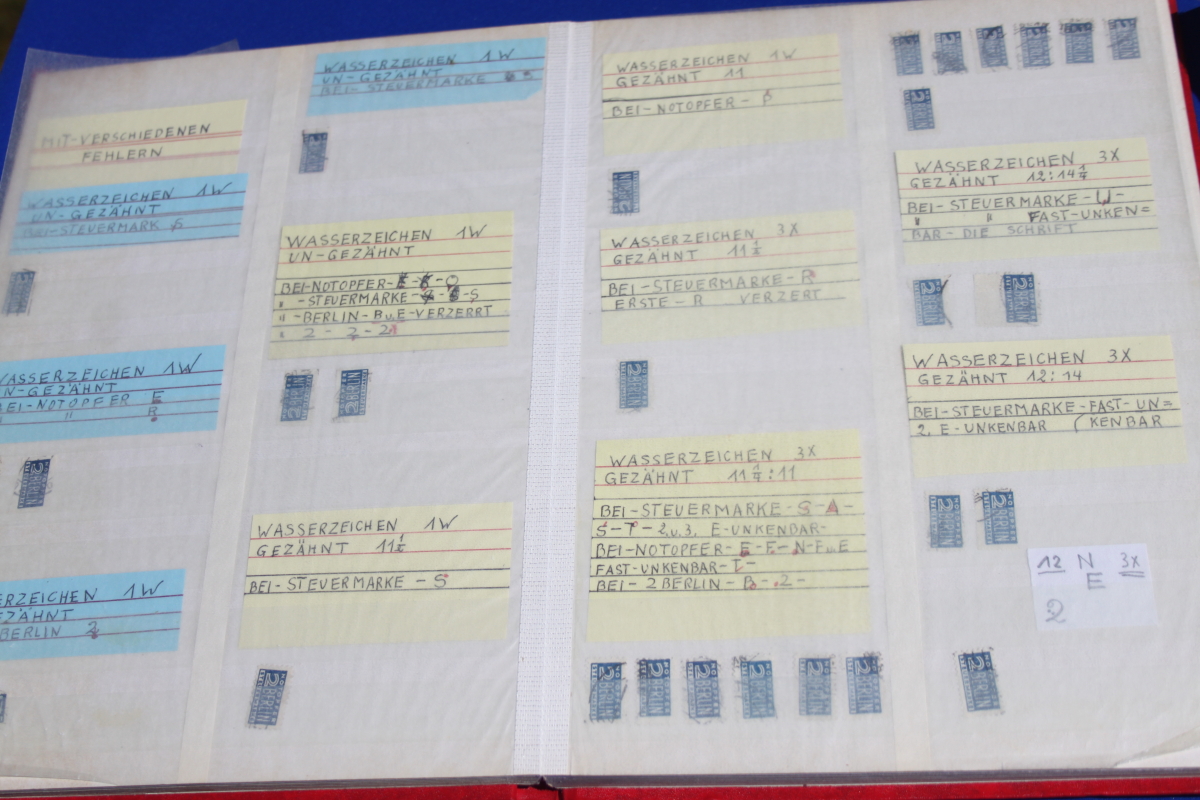 MIT-VERSCHIEDENEN
FEHLERN
WASSERZEICHEN 1W
UN-GEZÄHNT
BEI-STEUERMARK
WASSERZEICHEN 1W
UN-GEZÄHNT
BEI-NOTOPFER E
" " R
ERZEICHEN 1W
EZÄHNT
BERLIN 2
WASSERZEICHEN 1W
UN-GEZÄHNT
BEI-STEUERMARKE
WASSERZEICHEN 1W
UN-GEZÄHNT
BEI-NOTOPFER-
" -STEUERMARKE-
" -BERLIN-B u. E-VERZERRT
" 2 - 2 - 2
WASSERZEICHEN 1W
GEZÄHNT 11½
BEI-STEUERMARKE-S
WASSERZEICHEN 1W
GEZÄHNT 11
BEI-NOTOPFER-
WASSERZEICHEN 3X
GEZÄHNT 11½
BEI-STEUERMARKE-R
ERSTE-R VERZERT
WASSERZEICHEN 3X
GEZÄHNT 11¼:11
BEI-STEUERMARKE-S-A-
S-T-2.u.3. E-UNKENBAR-
BEI-NOTOPFER-E-F-N-F u. E
FAST-UNKENBAR-T-
BEI-2 BERLIN-B-.2-
WASSERZEICHEN 3X
GEZÄHNT 12:14¼
BEI-STEUERMARKE-U-
" " FAST-UNKEN=
BAR-DIE SCHRIFT
WASSERZEICHEN 3X
GEZÄHNT 12:14
BEI-STEUERMARKE-FAST-UN=
2. E-UNKENBAR (KENBAR
12 N 3X
E
2
2 BERLIN
2 BERLIN
2 BERLIN
2 BERLIN
2 BERLIN
2 BERLIN